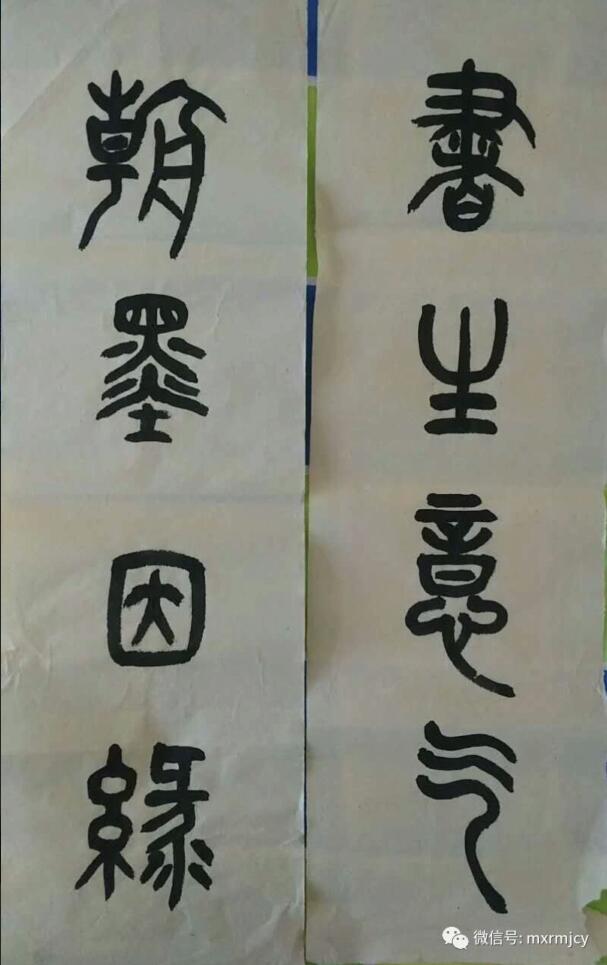 書生意气
翰墨因緣
微信号: mxrmjcy